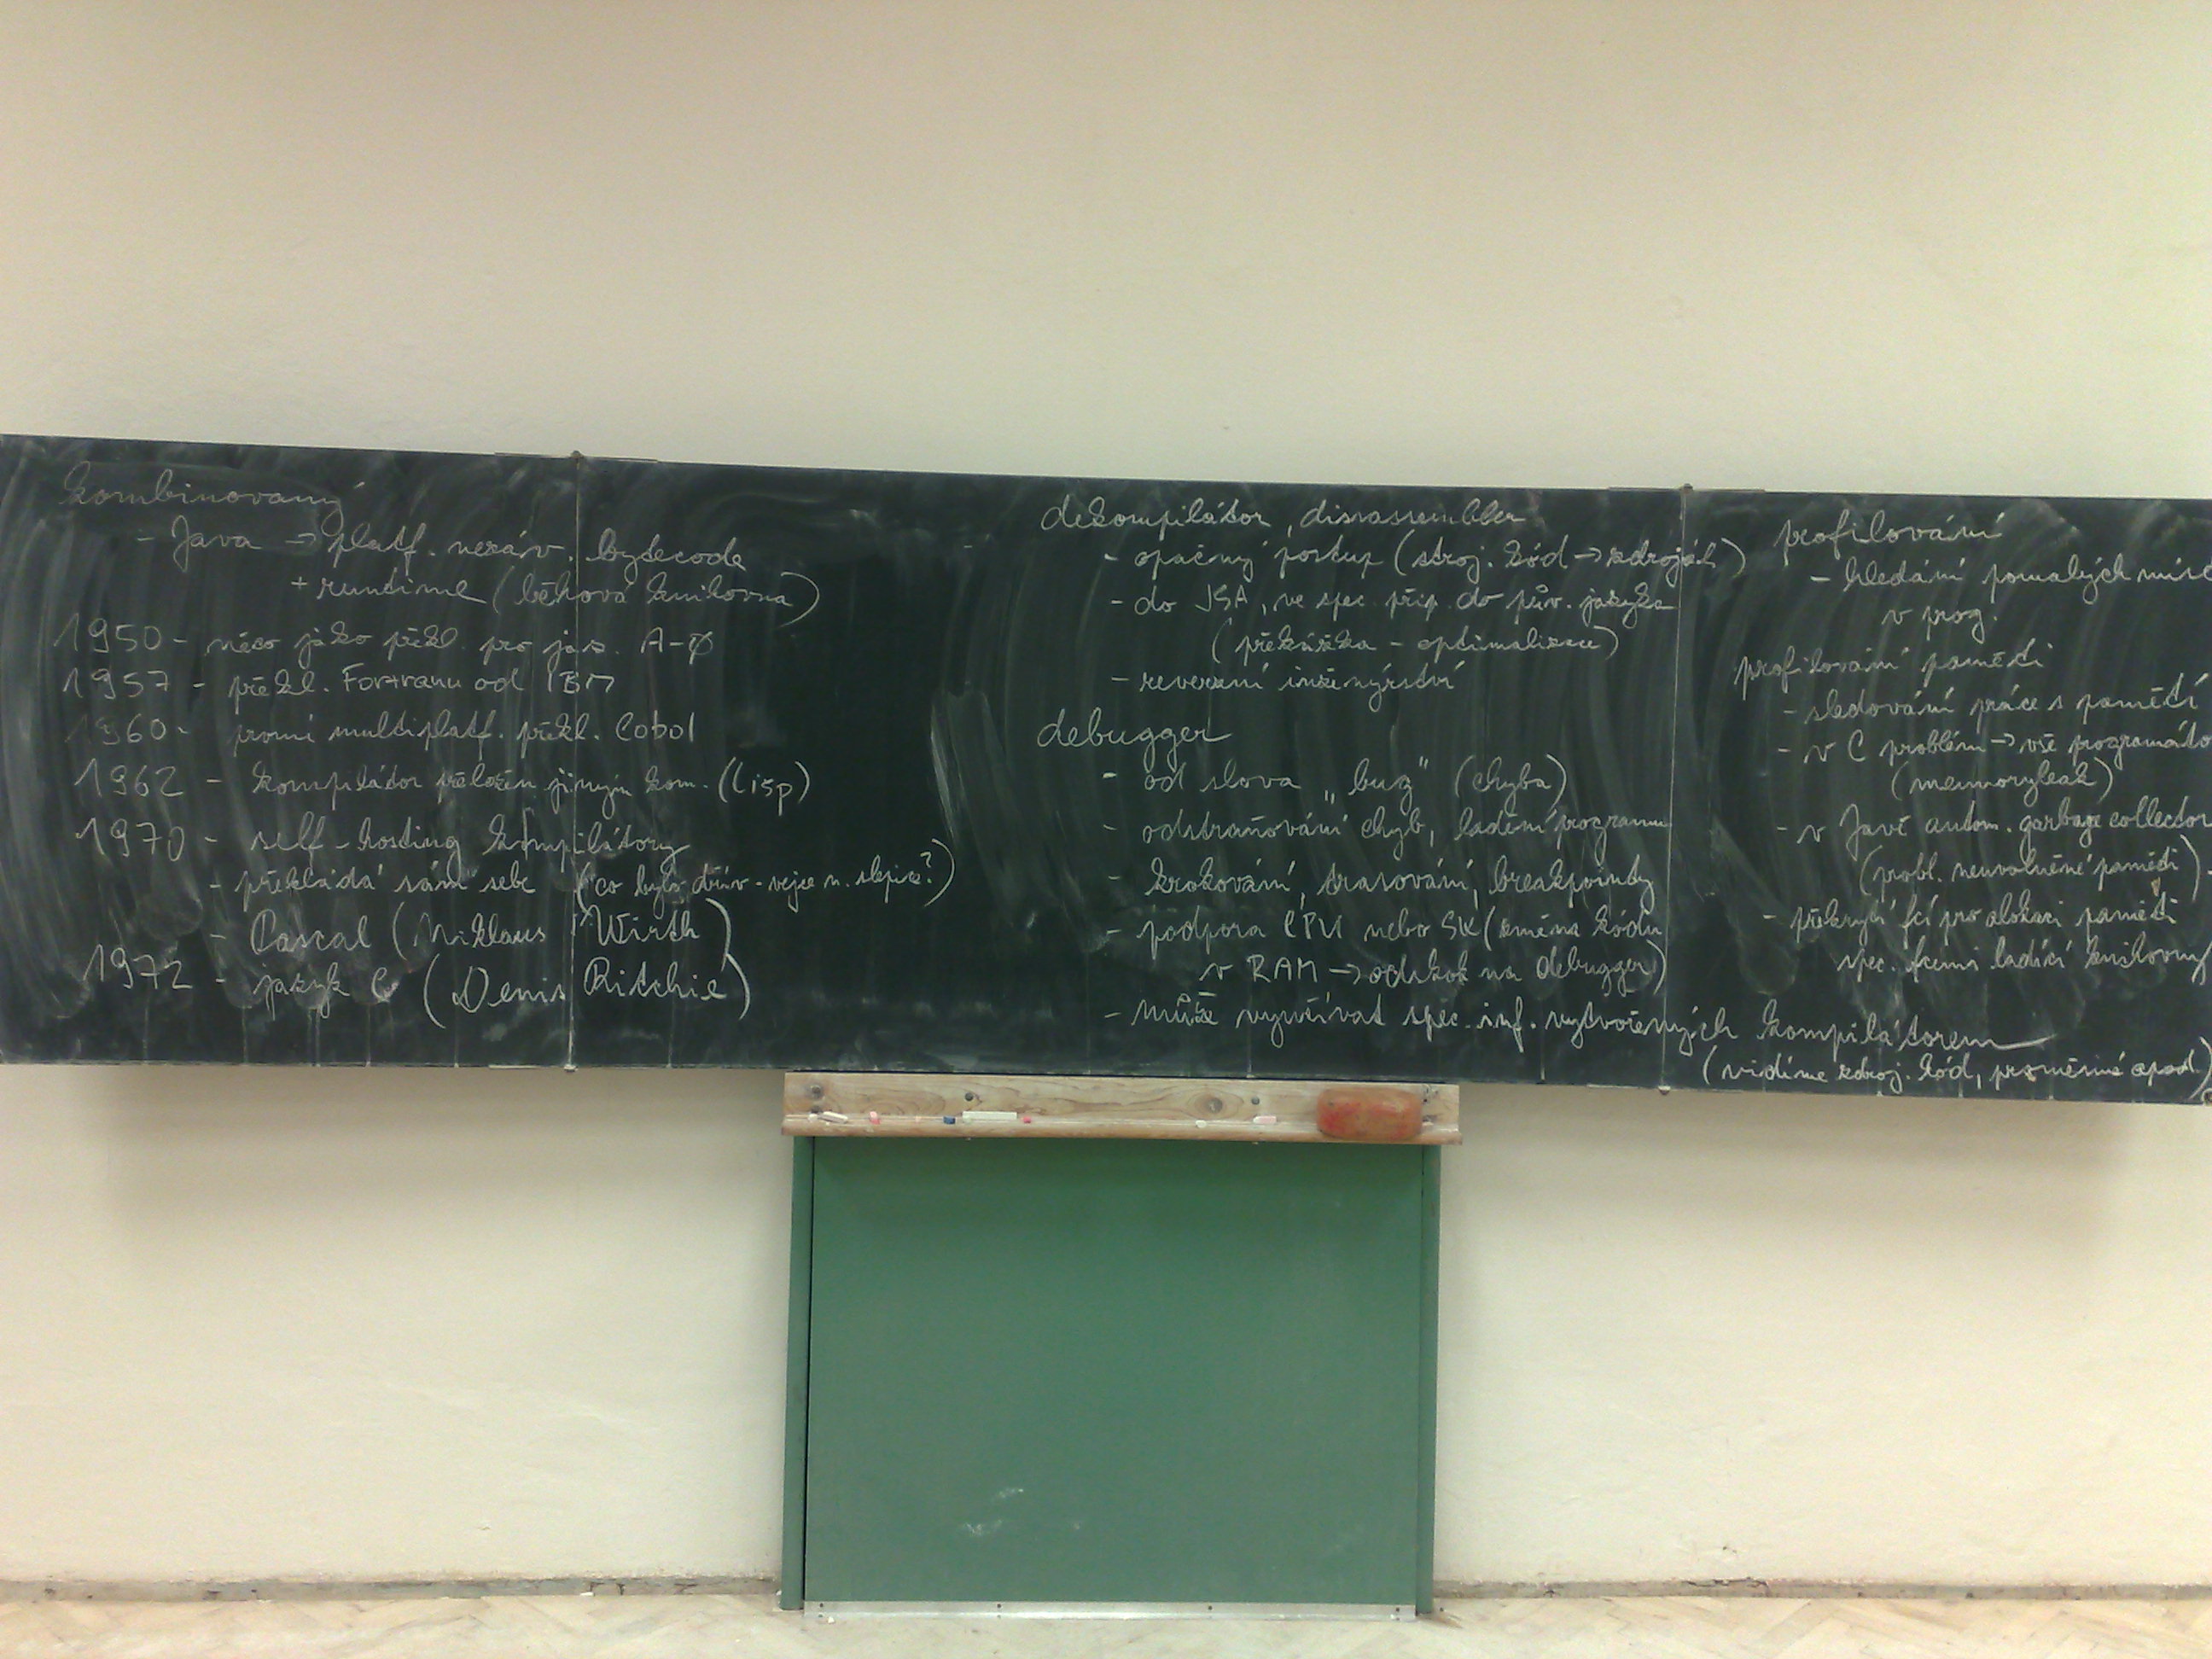 kombinovaný
- Java → platf. nezáv. bytecode
+ runtime (běhová knihovna)
1950 - něco jako překl. pro jaz. A-0
1957 - překl. Fortranu od IBM
1960 - první multiplatf. překl. Cobol
1962 - kompilátor přeložen jiným kom. (Lisp)
1970 - self-hosting kompilátory
- překládá sám sebe (co bylo dřív - vejce n. slepice?)
- Pascal (Niklaus Wirth)
1972 - jazyk C (Denis Ritchie)
dekompilátor, disassembler
- opačný postup (stroj. kód → zdroják)
- do JSA, ve spec. příp. do pův. jazyka
(překážka - optimalizace)
- reverzní inženýrství
debugger
- od slova „bug" (chyba)
- odstraňování chyb, ladění programu
- krokování, trasování, breakpointy
- podpora CPU nebo SW (změna kódu
v RAM → odskok na debugger)
- může využívat spec. inf. vytvořených kompilátorem
(vidíme zdroj. kód, proměnné apod)
profilování
- hledání pomalých míst
v prog.
profilování paměti
- sledování práce s pamětí
- v C problém → vše programáto
(memoryleak)
- v Javě autom. garbage collector
(probl. neuvolněné paměti)
- překrytí fcí pro alokaci paměti
spec. fcemi ladící knihovny